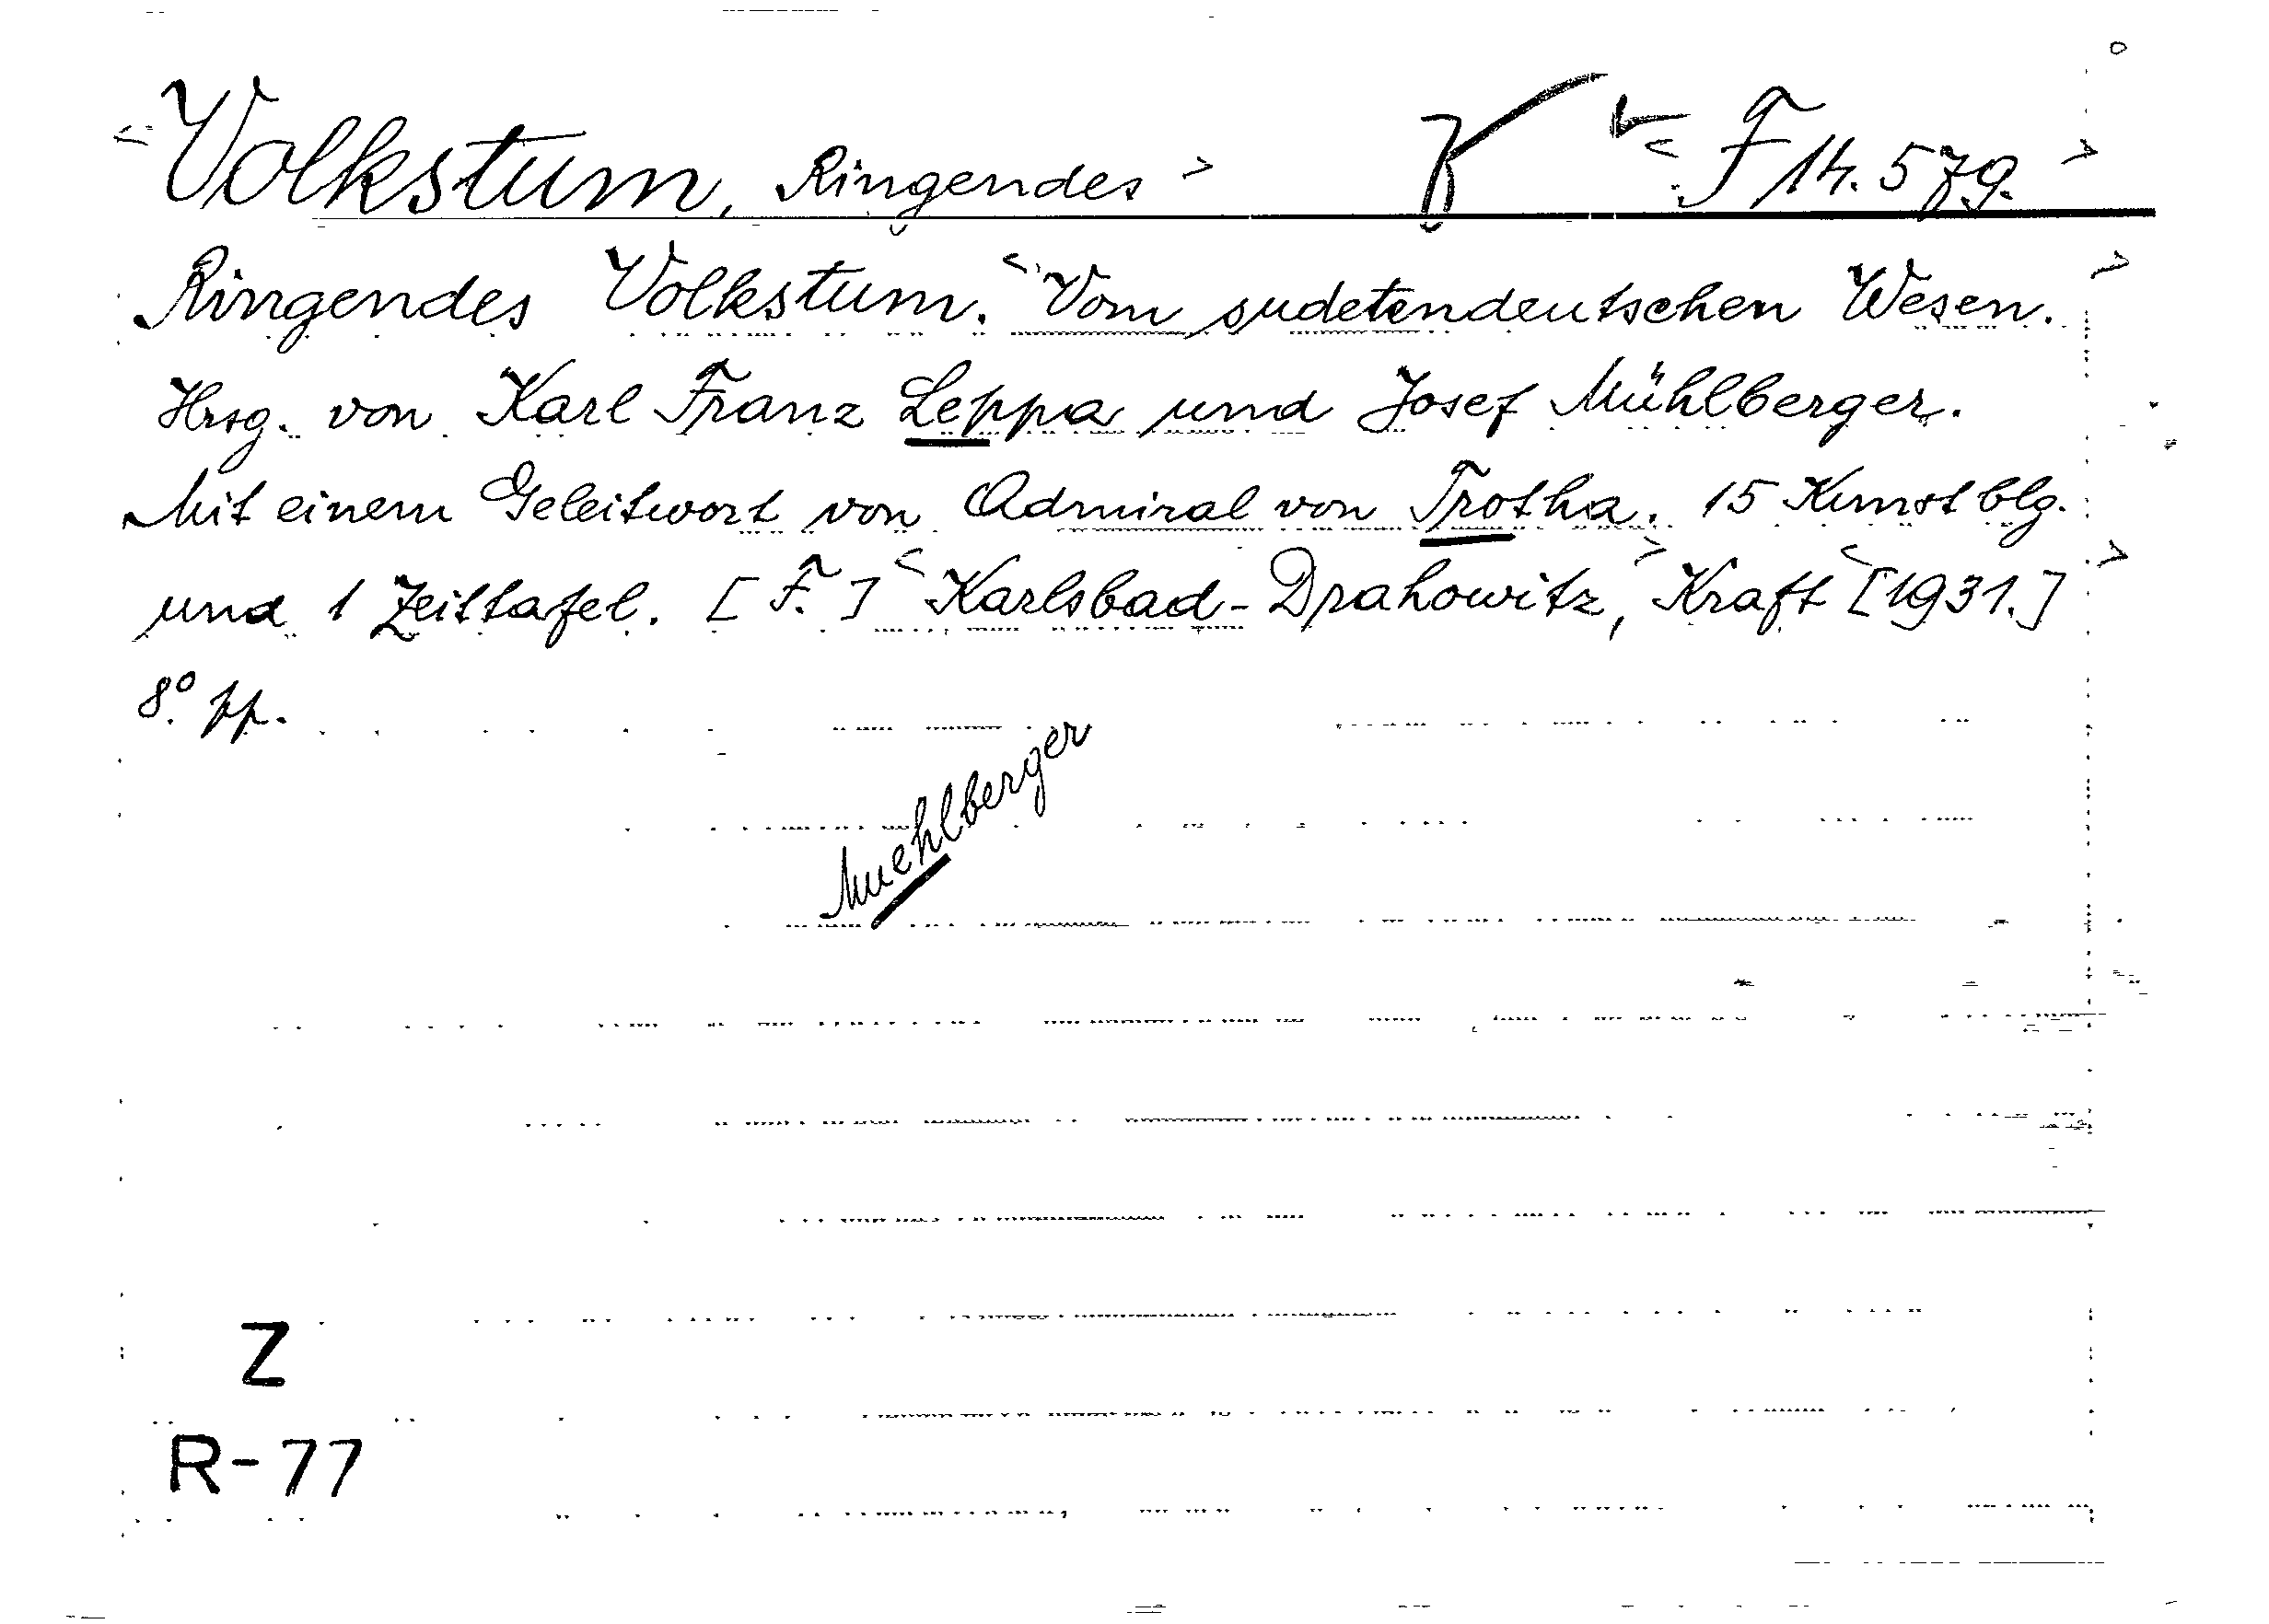 <Volkstum, Ringendes> K <F 14.579.>
Ringendes Volkstum. <Vom sudetendeutschen Wesen.>
Hrsg. von Karl Franz Leppa und Josef Mühlberger.
Mit einem Geleitwort von Admiral von Trotha. 15 Kunstblg.
und 1 Zeittafel. [F.] <Karlsbad-Drahowitz,> Kraft <[1931.]>
8° pp.
Muehlberger
Z
R-77